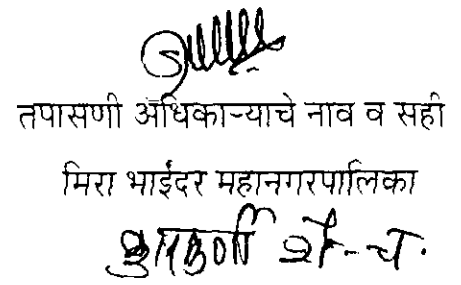 तपासणी अधिकाऱ्याचे नाव व सही
मिरा भाईंदर महानगरपालिका
कुलकर्णी शै-च.